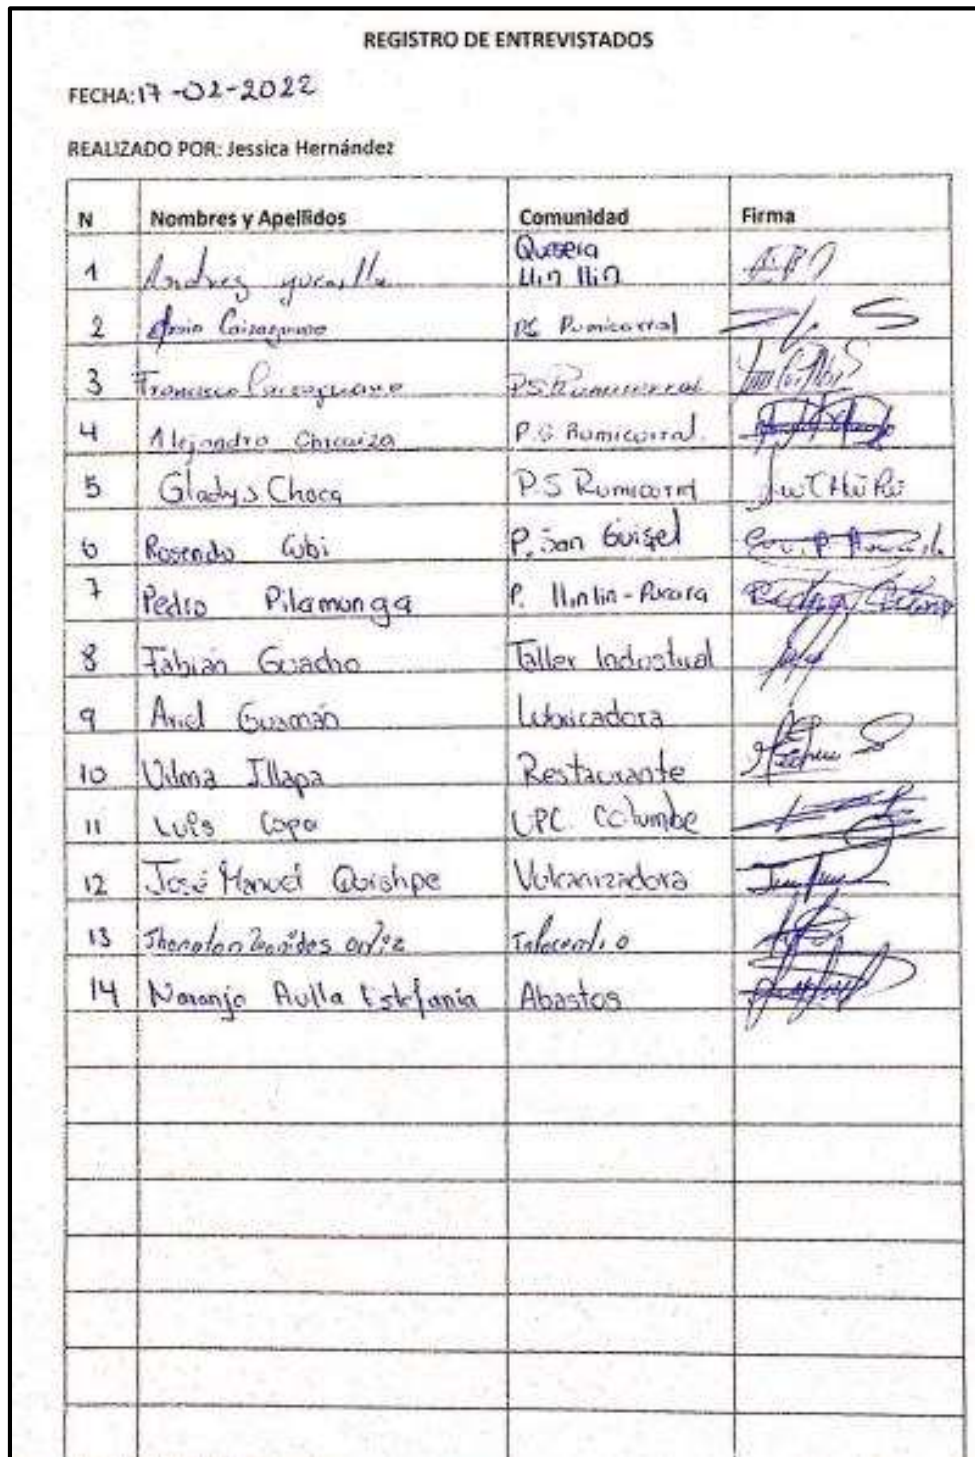 REGISTRO DE ENTREVISTADOS
FECHA: 17-02-2022
REALIZADO POR: Jessica Hernández
N Nombres y Apellidos Comunidad Firma
1 Andrez Quesera
Llin llin
2 PS Rumicorral
3 Francisco P.S Rumicorral
4 Alejandro Chicaiza P.S Rumicorral.
5 Gladys Choca P.S Rumicorral
6 Rosendo Cubi P. San Guisel
7 Pedro Pilamunga P. llinlin - Pucara
8 Fabian Guacho Taller Industrial
9 Ariel Guaman Lubricadora
10 Vilma Illapa Restaurante
11 Luis Copa UPC Columbe
12 José Manuel Quishpe Vulcanizadora
13 Jhonatan
14 Naranjo Aulla Estefania Abastos